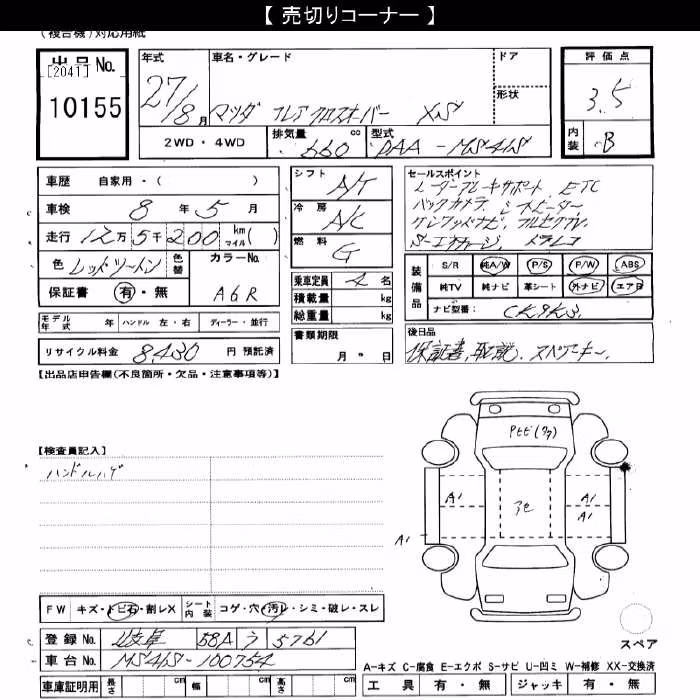 【 売切りコーナー 】
(複合機)対応用紙
出品No. [2041] 10155
年式 27/8月
車名・グレード マツダ フレアクロスオーバー XS
ドア
形状
評価点 3.5
内装 B
2WD・4WD
排気量 660 cc
型式 DAA-MS41S
車歴 自家用・( )
車検 8年 5月
走行 12万5千200 km マイル( )
色 レッドツートン 色替
カラーNo. A6R
保証書 有・無
シフト A/T
冷房 A/C
燃料 G
乗車定員 4名
積載量 kg
総重量 kg
セールスポイント
レーダーブレーキサポート ETC
バックカメラ シートヒーター
ケンウッドナビ フルセグTV
S-エネチャージ、ドラレコ
装備品 S/R 純A/W P/S P/W ABS
純TV 純ナビ 革シート 外ナビ エアB
ナビ型番:
モデル年式 年 ハンドル 左・右 ディーラー・並行
リサイクル料金 8,430 円 預託済
書類期限 月 日
後日品
保証書、取説、スペアキー、
【出品店申告欄(不良箇所・欠品・注意事項等)】
【検査員記入】
ハンドルハゲ
P七ヒ(タタ)
A1 アセ A1
A1
A1
FW キズ・トビ石・割レX シート内装 コゲ・穴・汚レ・シミ・破レ・スレ
登録No. 岐阜 58A ラ 5761
車台No. MS41S-100754
スペア
A-キズ C-腐食 E-エクボ S-サビ U-凹ミ W-補修 XX-交換済
車庫証明用 長さ cm 幅 cm 高さ cm
工具 有・無 ジャッキ 有・無